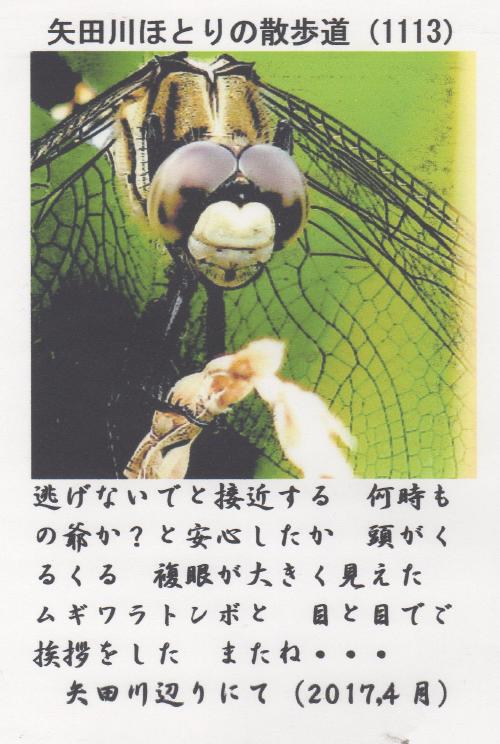 矢田川ほとりの散歩道（1113）
逃げないでと接近する　何時も
の爺か？と安心したか　頭がく
るくる　複眼が大きく見えた
ムギワラトンボと　目と目でご
挨拶をした　またね・・・
矢田川辺りにて（2017,4月）